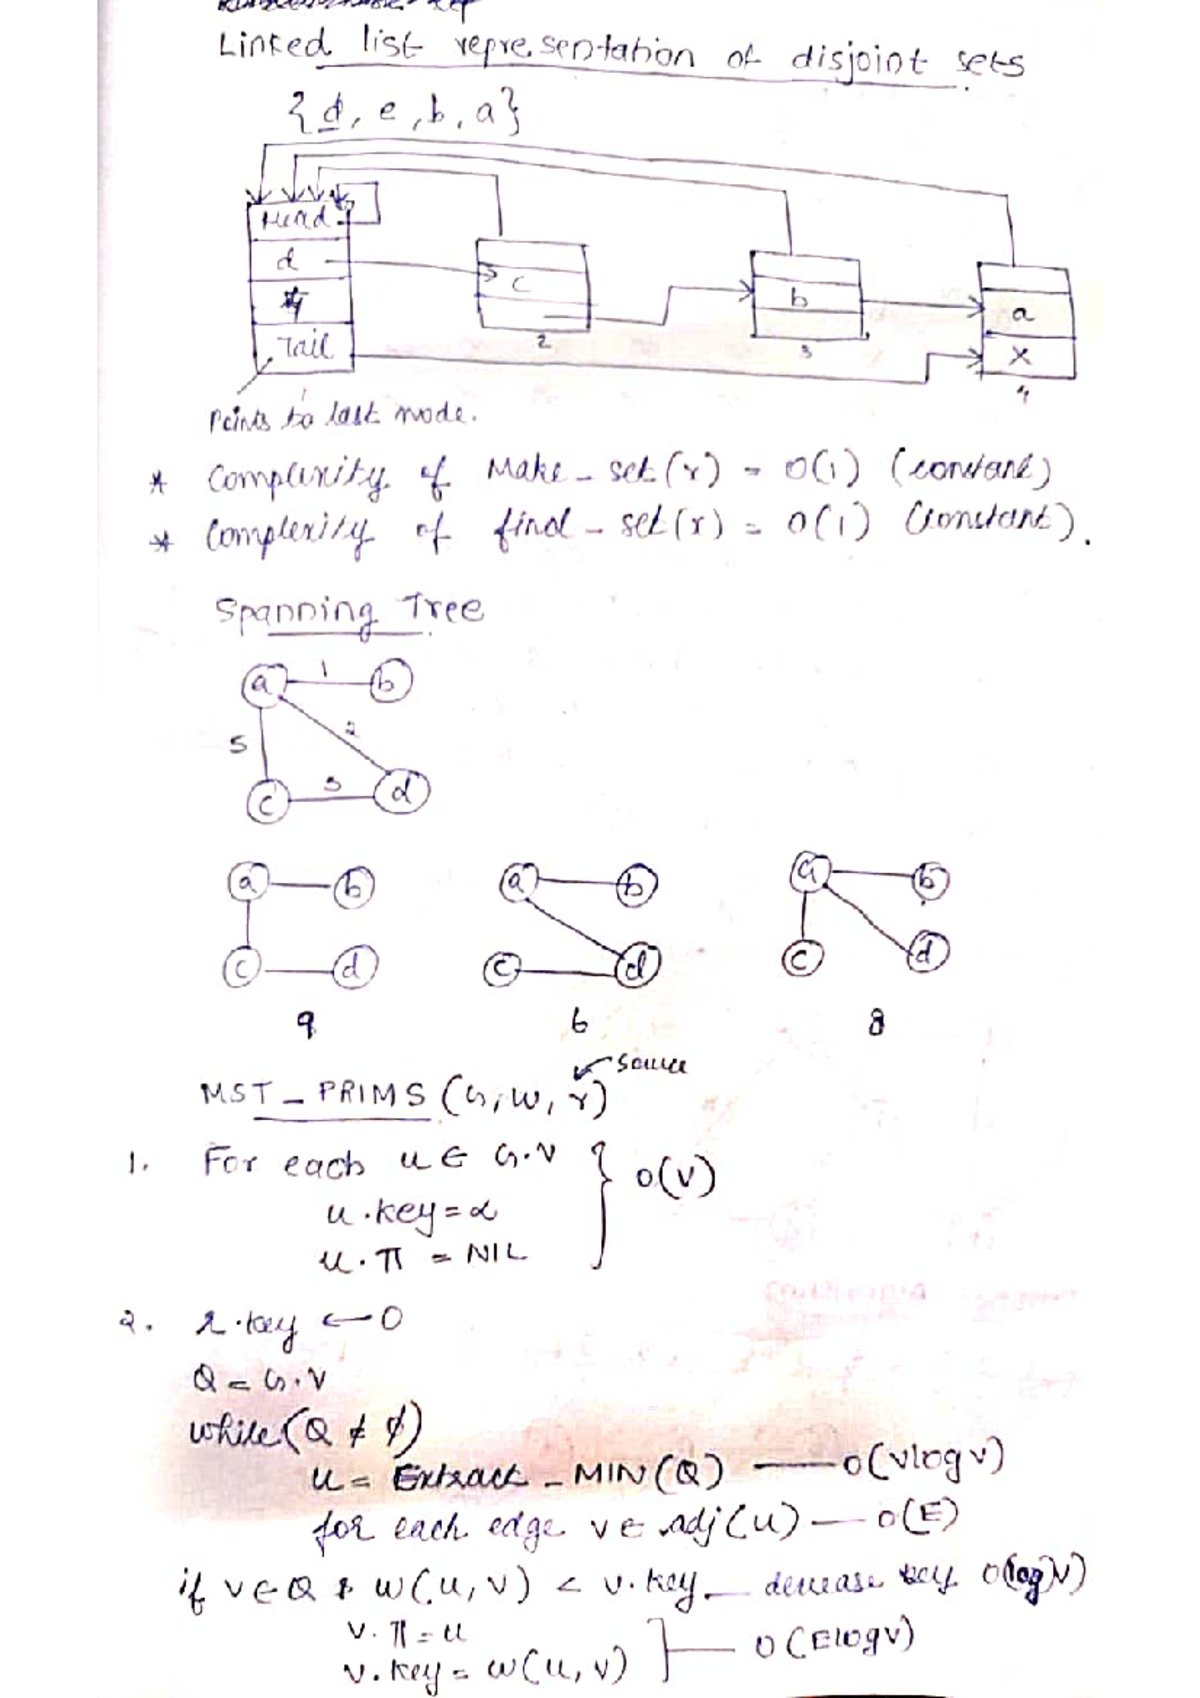 Linked list representation of disjoint sets
{d, e, b, a}
Head
d
c
b
a
Tail
X
2
3
4
Points to last node.
* Complexity of Make-set(x) = O(1) (constant)
* Complexity of find-set(x) = O(1) (constant).
Spanning Tree
a 1 b
5 2
c 3 d
a b a b a b
c d c d c d
9 6 8
source
MST_PRIMS (G, W, r)
1. For each u ∈ G.V } O(V)
u.key = ∝
u.π = NIL
2. r.key ← 0
Q = G.V
while (Q ≠ ∅)
u = Extract_MIN(Q) — O(VlogV)
for each edge v ∈ adj(u) — O(E)
if v ∈ Q & w(u, v) < v.key — decrease key O(logV)
v.π = u
v.key = w(u, v) ] — O(ElogV)